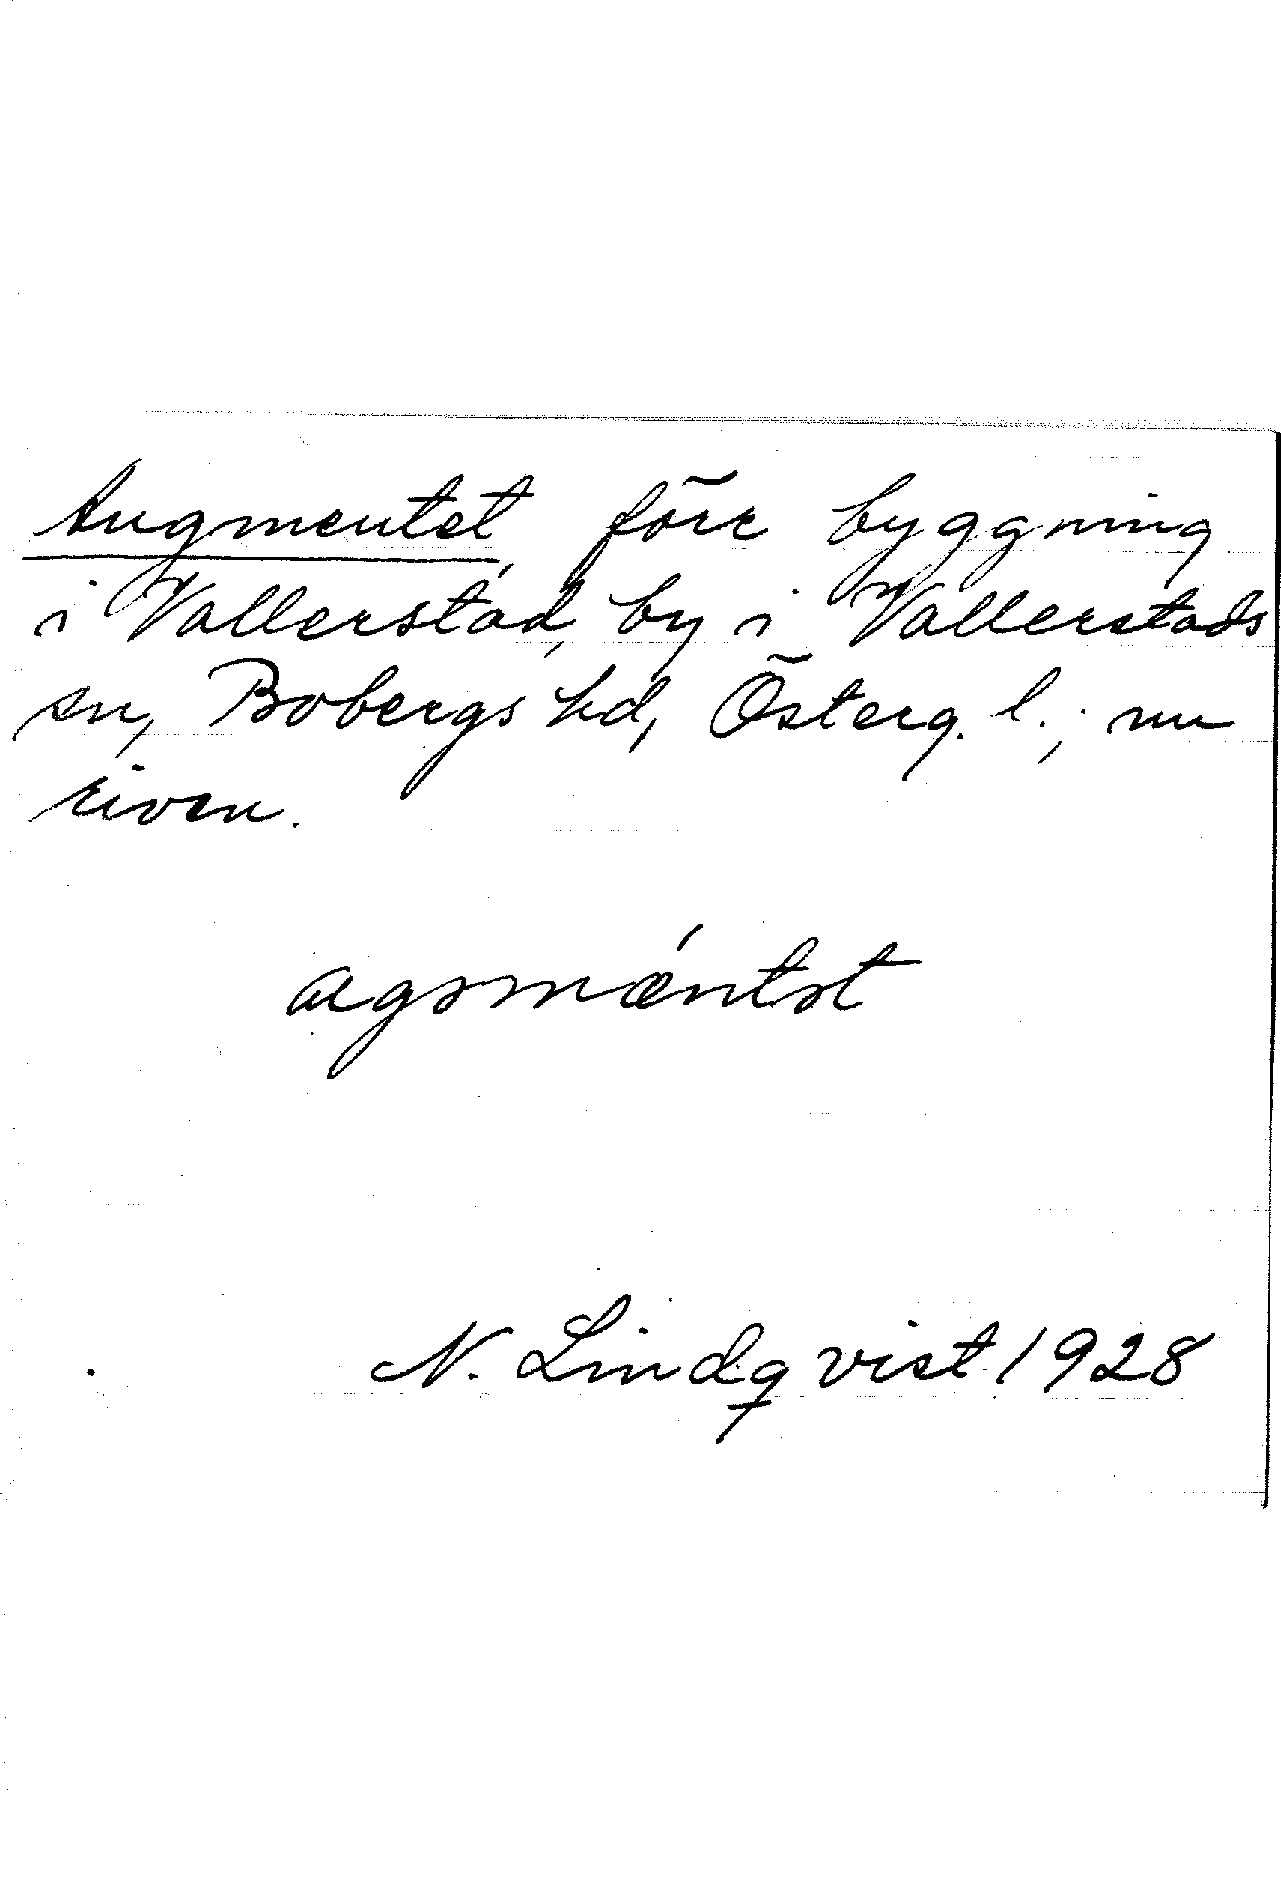 Augmentet, förr byggning
i Vallerstad, by i Vallerstads
sn, Bobergs hd, Österg. l.; nu
riven.
agəmǽntət
N. Lindqvist 1928